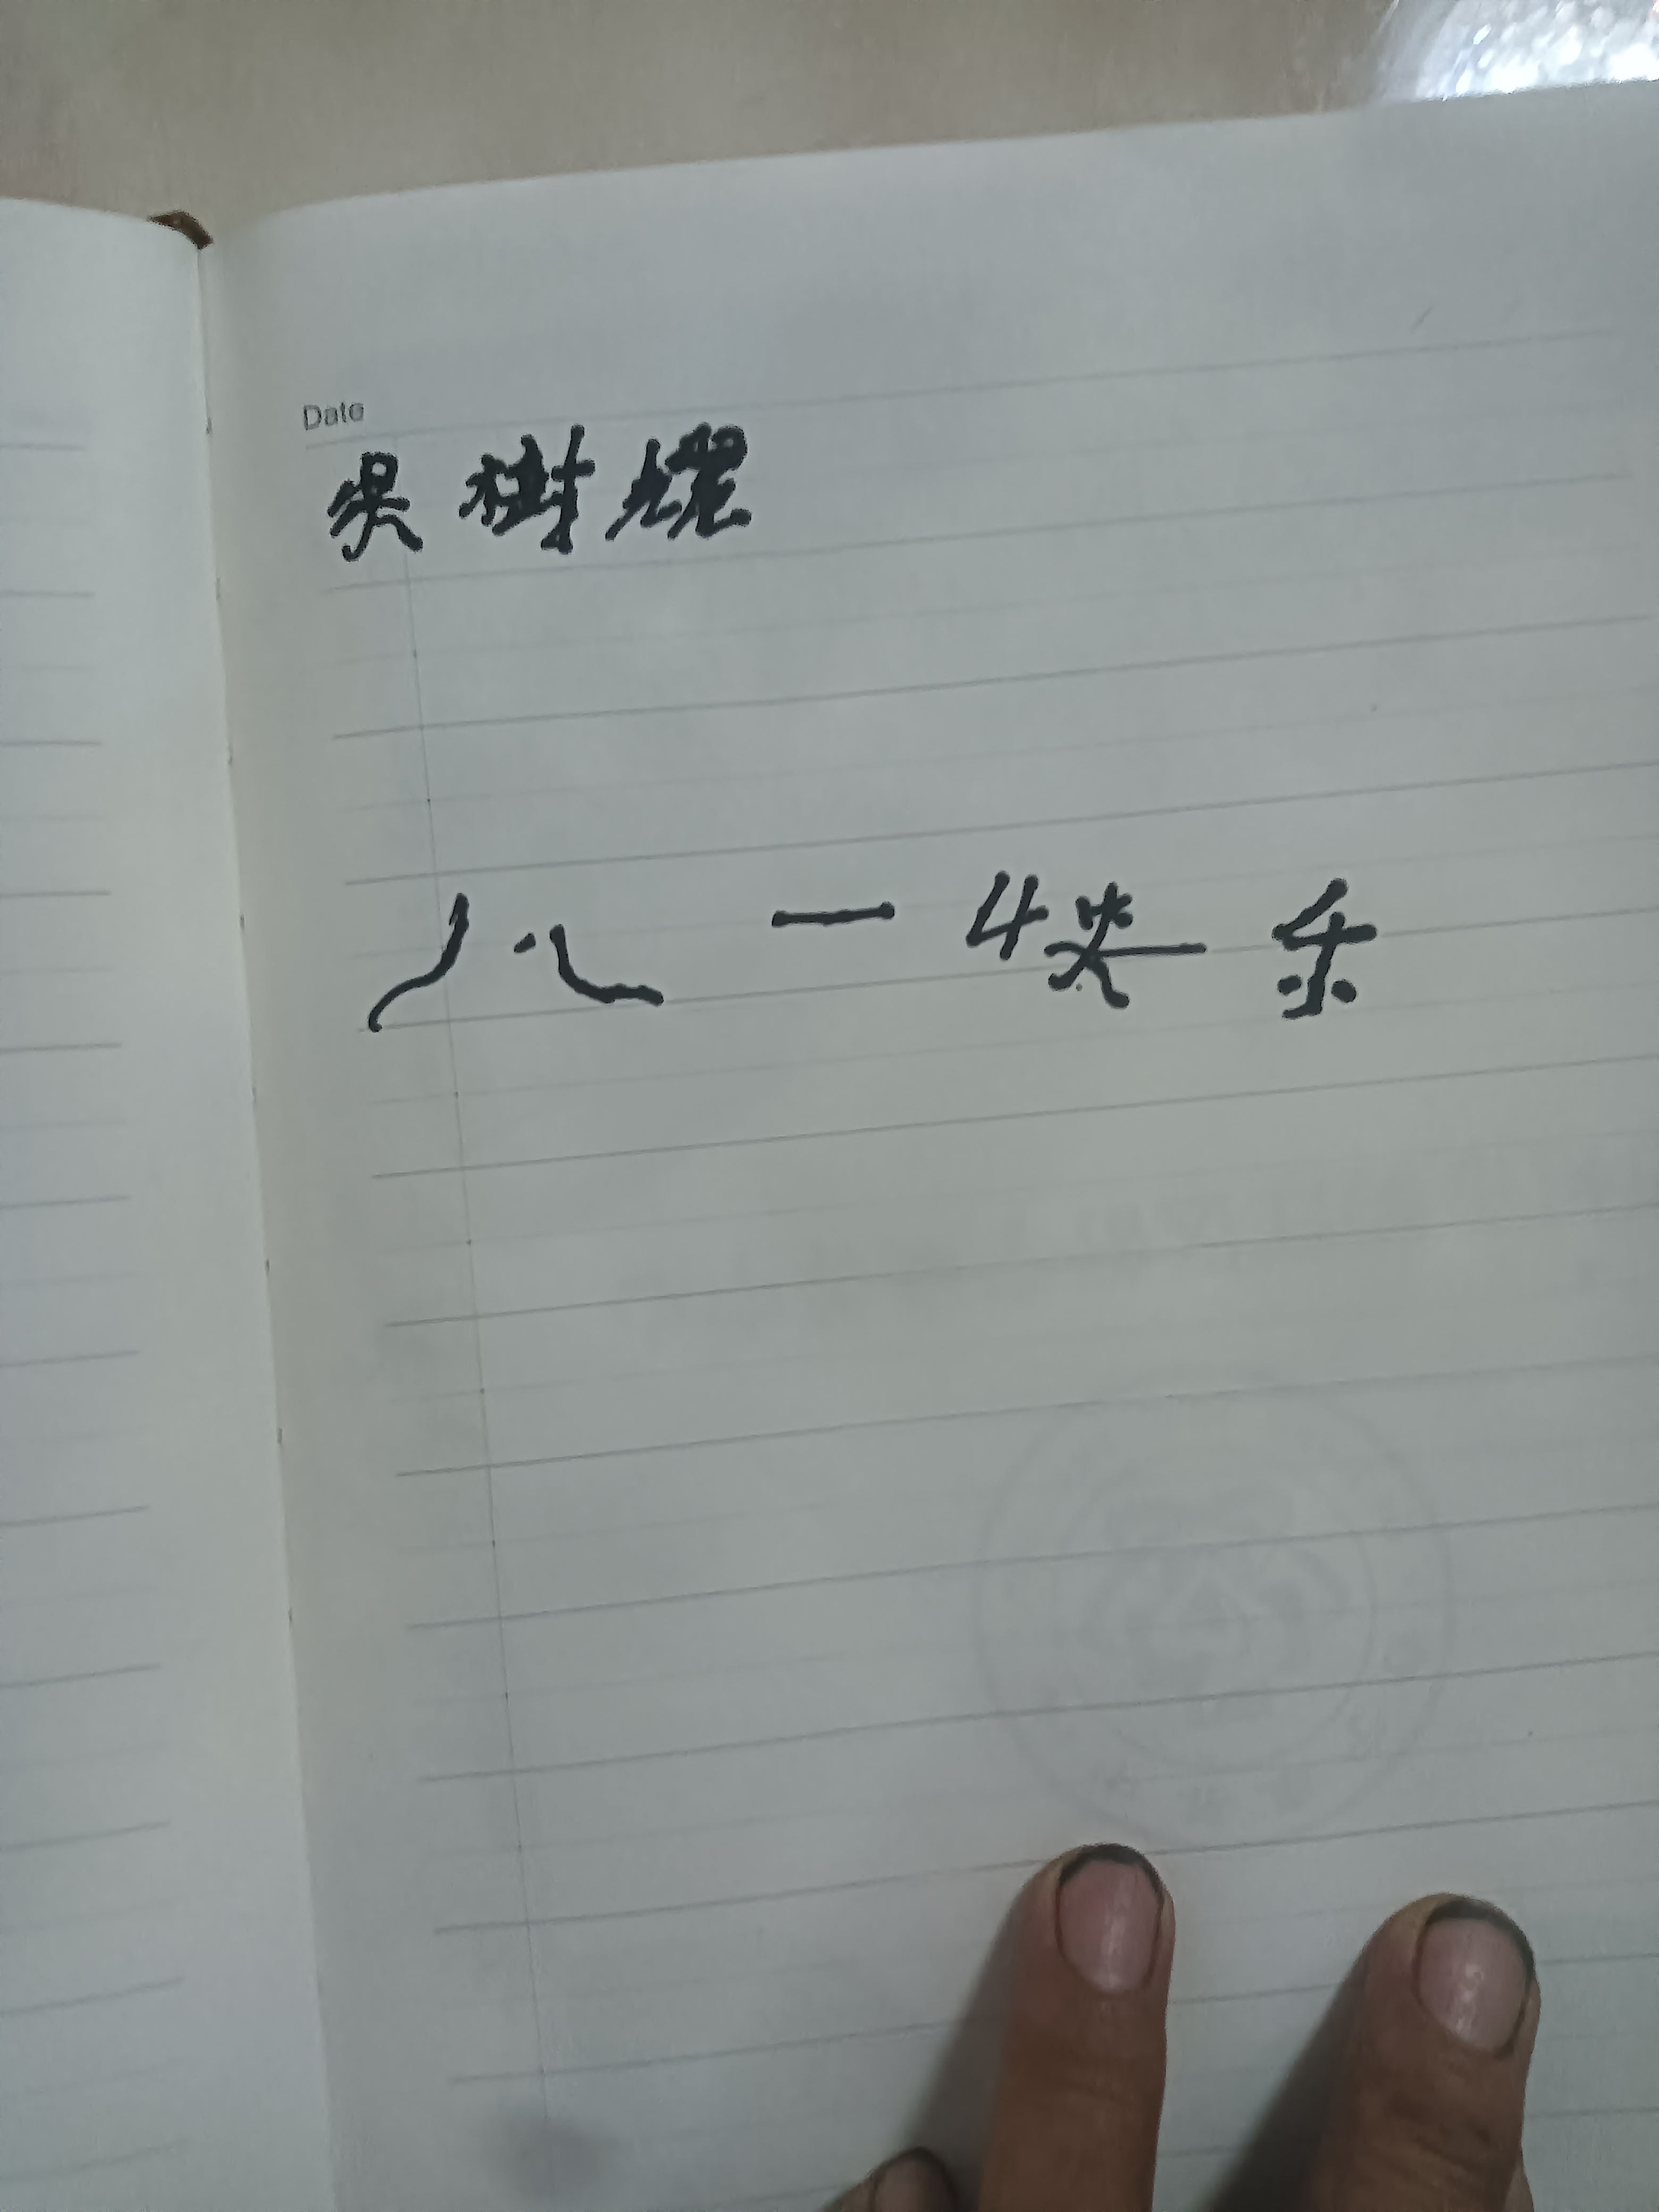 Date
吴樹耀
八一快乐